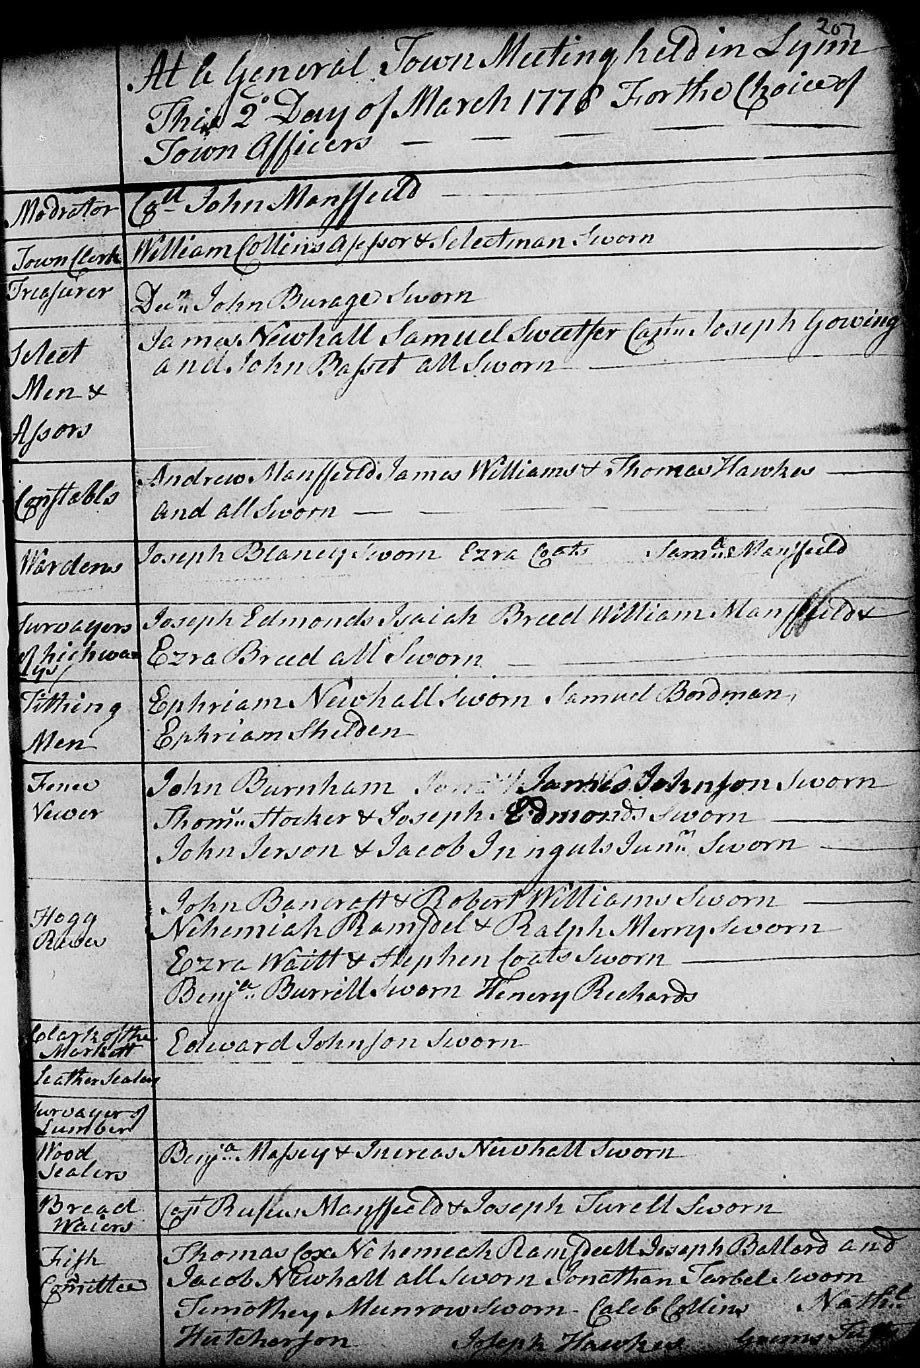 207
At a General Town Meeting held in Lynn
This 2d Day of March 1778 For the Choice of
Town Officers
Modrator Coll John Mansfield
Town Clerk William Collins Assor & Selectman Sworn
Treasurer Dean John Burage Sworn
Select James Newhall Samuel Sweetser Captn Joseph Gowing
Men & and John Basset all Sworn
Assors
Constabls Andrew Mansfield James Williams & Thomas Hawkes
and all Sworn
Wardens Joseph Blaney Sworn Ezra Coats Samuel Mansfield
Survayers Joseph Edmonds Isaiah Breed William Mansfield &
of highwa Ezra Breed all Sworn
ys
Tithing Ephriam Newhall Sworn Samuel Bordman
Men Ephriam Shelden
Fence John Burnham James Johnson Sworn
Vewer Thoms Hocker & Joseph Edmonds Sworn
John Jerson & Jacob Inguls Junr Sworn
John Bancraft & Robert Williams Sworn
Hogg Nehemiah Ramsdel & Ralph Merry Sworn
Reves Ezra Waitt & Stephen Coats Sworn
Benja Burrill Sworn Henery Richards
Clark of the Edward Johnson Sworn
Markett
Leather Sealers
Survayer of
Lumber
Wood Benja Massey & Increas Newhall Sworn
Sealers
Bread Capt Rufus Mansfield & Joseph Turell Sworn
Waiers
Fish Thomas Cox Nehemiah Ramsdell Joseph Ballard and
Comittee Jacob Newhall all Sworn Jonathan Tarbel Sworn
Timothey Munrow Sworn Caleb Collins Nathll
Hutcherson Joseph Hawkes